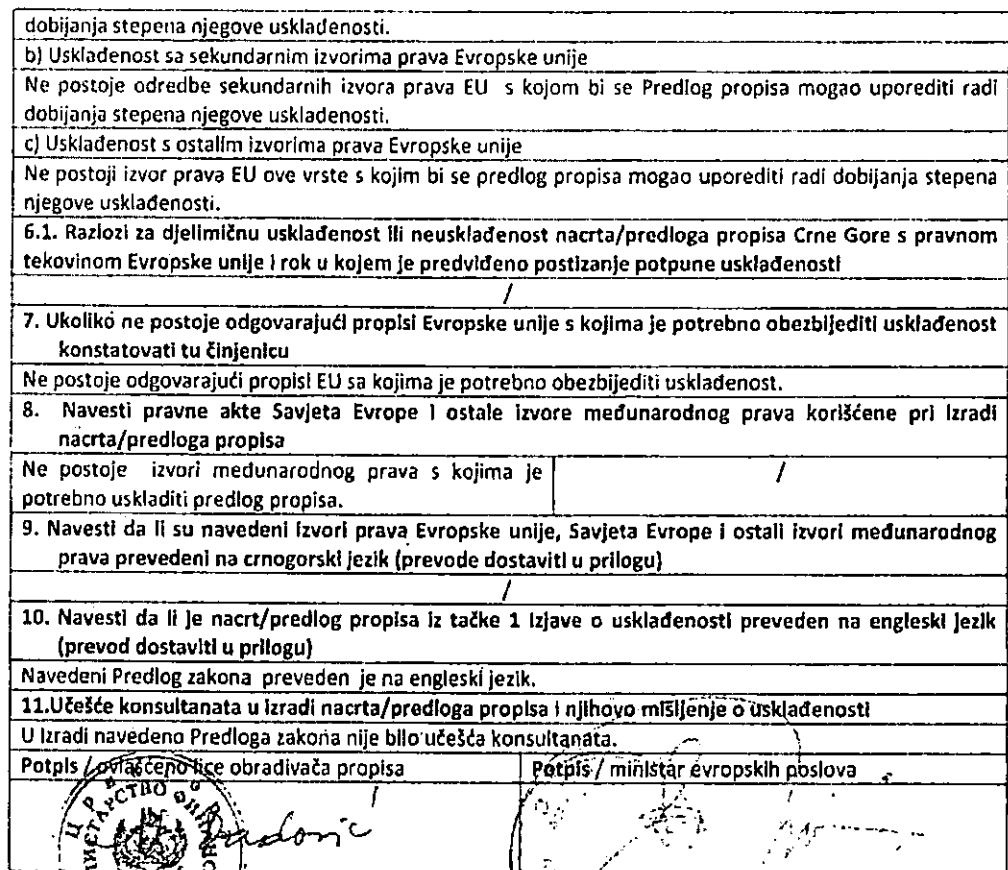 dobijanja stepena njegove usklađenosti.
b) Usklađenost sa sekundarnim izvorima prava Evropske unije
Ne postoje odredbe sekundarnih izvora prava EU s kojom bi se Predlog propisa mogao uporediti radi
dobijanja stepena njegove usklađenosti.
c) Usklađenost s ostalim izvorima prava Evropske unije
Ne postoji izvor prava EU ove vrste s kojim bi se predlog propisa mogao uporediti radi dobijanja stepena
njegove usklađenosti.
6.1. Razlozi za djelimičnu usklađenost ili neusklađenost nacrta/predloga propisa Crne Gore s pravnom
tekovinom Evropske unije i rok u kojem je predviđeno postizanje potpune usklađenosti
/
7. Ukoliko ne postoje odgovarajući propisi Evropske unije s kojima je potrebno obezbijediti usklađenost
konstatovati tu činjenicu
Ne postoje odgovarajući propisi EU sa kojima je potrebno obezbijediti usklađenost.
8. Navesti pravne akte Savjeta Evrope i ostale izvore međunarodnog prava korišćene pri izradi
nacrta/predloga propisa
Ne postoje izvori međunarodnog prava s kojima je
potrebno uskladiti predlog propisa.
/
9. Navesti da li su navedeni izvori prava Evropske unije, Savjeta Evrope i ostali izvori međunarodnog
prava prevedeni na crnogorski jezik (prevode dostaviti u prilogu)
/
10. Navesti da li je nacrt/predlog propisa iz tačke 1 Izjave o usklađenosti preveden na engleski jezik
(prevod dostaviti u prilogu)
Navedeni Predlog zakona preveden je na engleski jezik.
11.Učešće konsultanata u izradi nacrta/predloga propisa i njihovo mišljenje o usklađenosti
U izradi navedeno Predloga zakona nije bilo učešća konsultanata.
Potpis / ovlašćeno lice obrađivača propisa
Potpis / ministar evropskih poslova